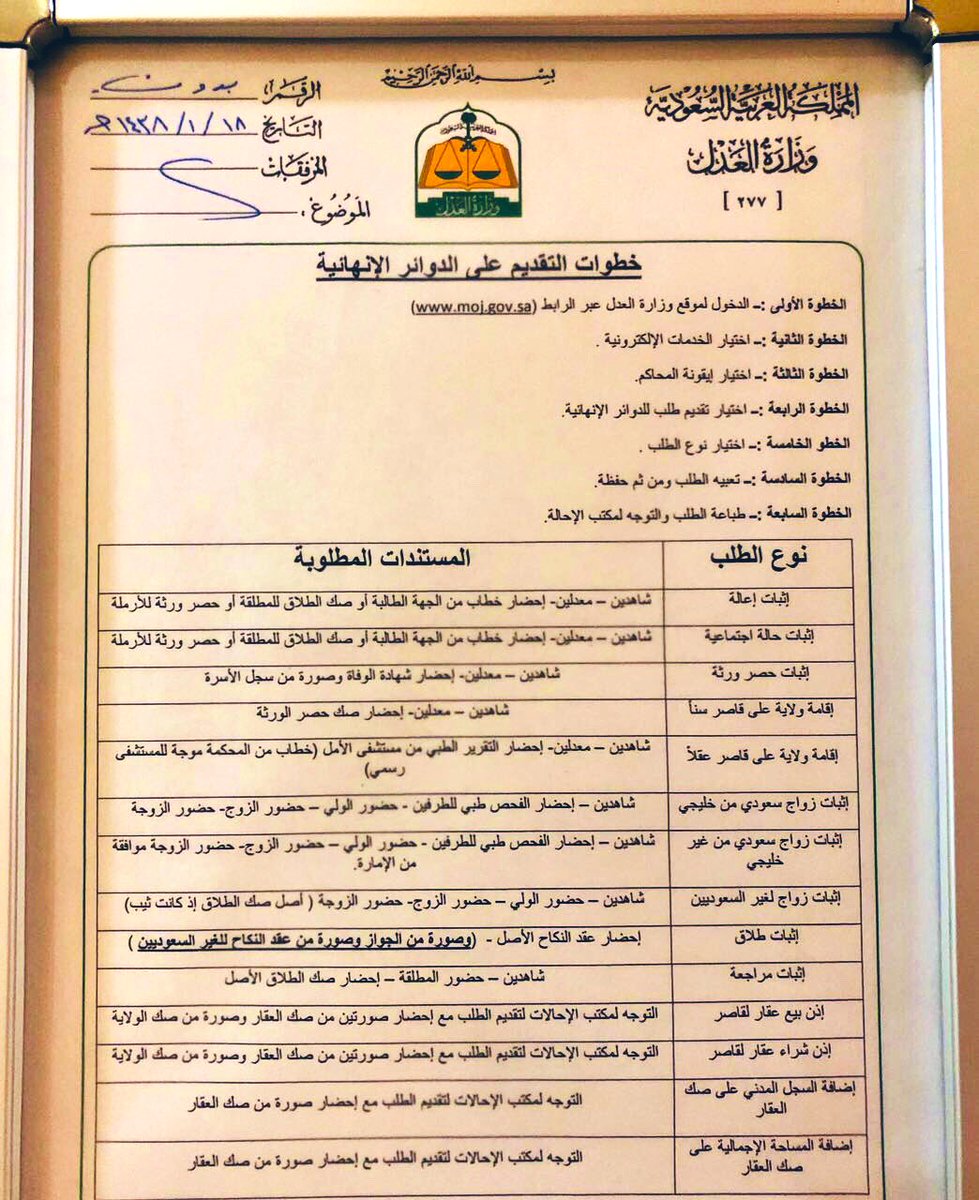 بسم الله الرحمن الرحيم
المملكة العربية السعودية
وزارة العدل
[ ٢٧٧ ]
الرقم: بدون
التاريخ ١٤٣٨/١/١٨ هـ
المرفقات
الموضوع:
وزارة العدل
خطوات التقديم على الدوائر الإنهائية
الخطوة الأولى :ـ الدخول لموقع وزارة العدل عبر الرابط (www.moj.gov.sa)
الخطوة الثانية :ـ اختيار الخدمات الإلكترونية .
الخطوة الثالثة :ـ اختيار إيقونة المحاكم.
الخطوة الرابعة :ـ اختيار تقديم طلب للدوائر الإنهائية.
الخطو الخامسة :ـ اختيار نوع الطلب .
الخطوة السادسة :ـ تعبيه الطلب ومن ثم حفظة.
الخطوة السابعة :ـ طباعة الطلب والتوجه لمكتب الإحالة.
نوع الطلب المستندات المطلوبة
إثبات إعالة شاهدين – معدلين- إحضار خطاب من الجهة الطالبة أو صك الطلاق للمطلقة أو حصر ورثة للأرملة
إثبات حالة اجتماعية شاهدين – معدلين- إحضار خطاب من الجهة الطالبة أو صك الطلاق للمطلقة أو حصر ورثة للأرملة
إثبات حصر ورثة شاهدين – معدلين- إحضار شهادة الوفاة وصورة من سجل الأسرة
إقامة ولاية على قاصر سناً شاهدين – معدلين- إحضار صك حصر الورثة
إقامة ولاية على قاصر عقلاً شاهدين – معدلين- إحضار التقرير الطبي من مستشفى الأمل (خطاب من المحكمة موجة للمستشفى
رسمي)
إثبات زواج سعودي من خليجي شاهدين – إحضار الفحص طبي للطرفين - حضور الولي – حضور الزوج- حضور الزوجة
إثبات زواج سعودي من غير شاهدين – إحضار الفحص طبي للطرفين - حضور الولي – حضور الزوج- حضور الزوجة موافقة
خليجي من الإمارة.
إثبات زواج لغير السعوديين شاهدين – حضور الولي – حضور الزوج- حضور الزوجة ( أصل صك الطلاق إذ كانت ثيب)
إثبات طلاق إحضار عقد النكاح الأصل - (وصورة من الجواز وصورة من عقد النكاح للغير السعوديين )
إثبات مراجعة شاهدين – حضور المطلقة – إحضار صك الطلاق الأصل
إذن بيع عقار لقاصر التوجه لمكتب الإحالات لتقديم الطلب مع إحضار صورتين من صك العقار وصورة من صك الولاية
إذن شراء عقار لقاصر التوجه لمكتب الإحالات لتقديم الطلب مع إحضار صورتين من صك العقار وصورة من صك الولاية
إضافة السجل المدني على صك التوجه لمكتب الإحالات لتقديم الطلب مع إحضار صورة من صك العقار
العقار
إضافة المساحة الإجمالية على التوجه لمكتب الإحالات لتقديم الطلب مع إحضار صورة من صك العقار
صك العقار